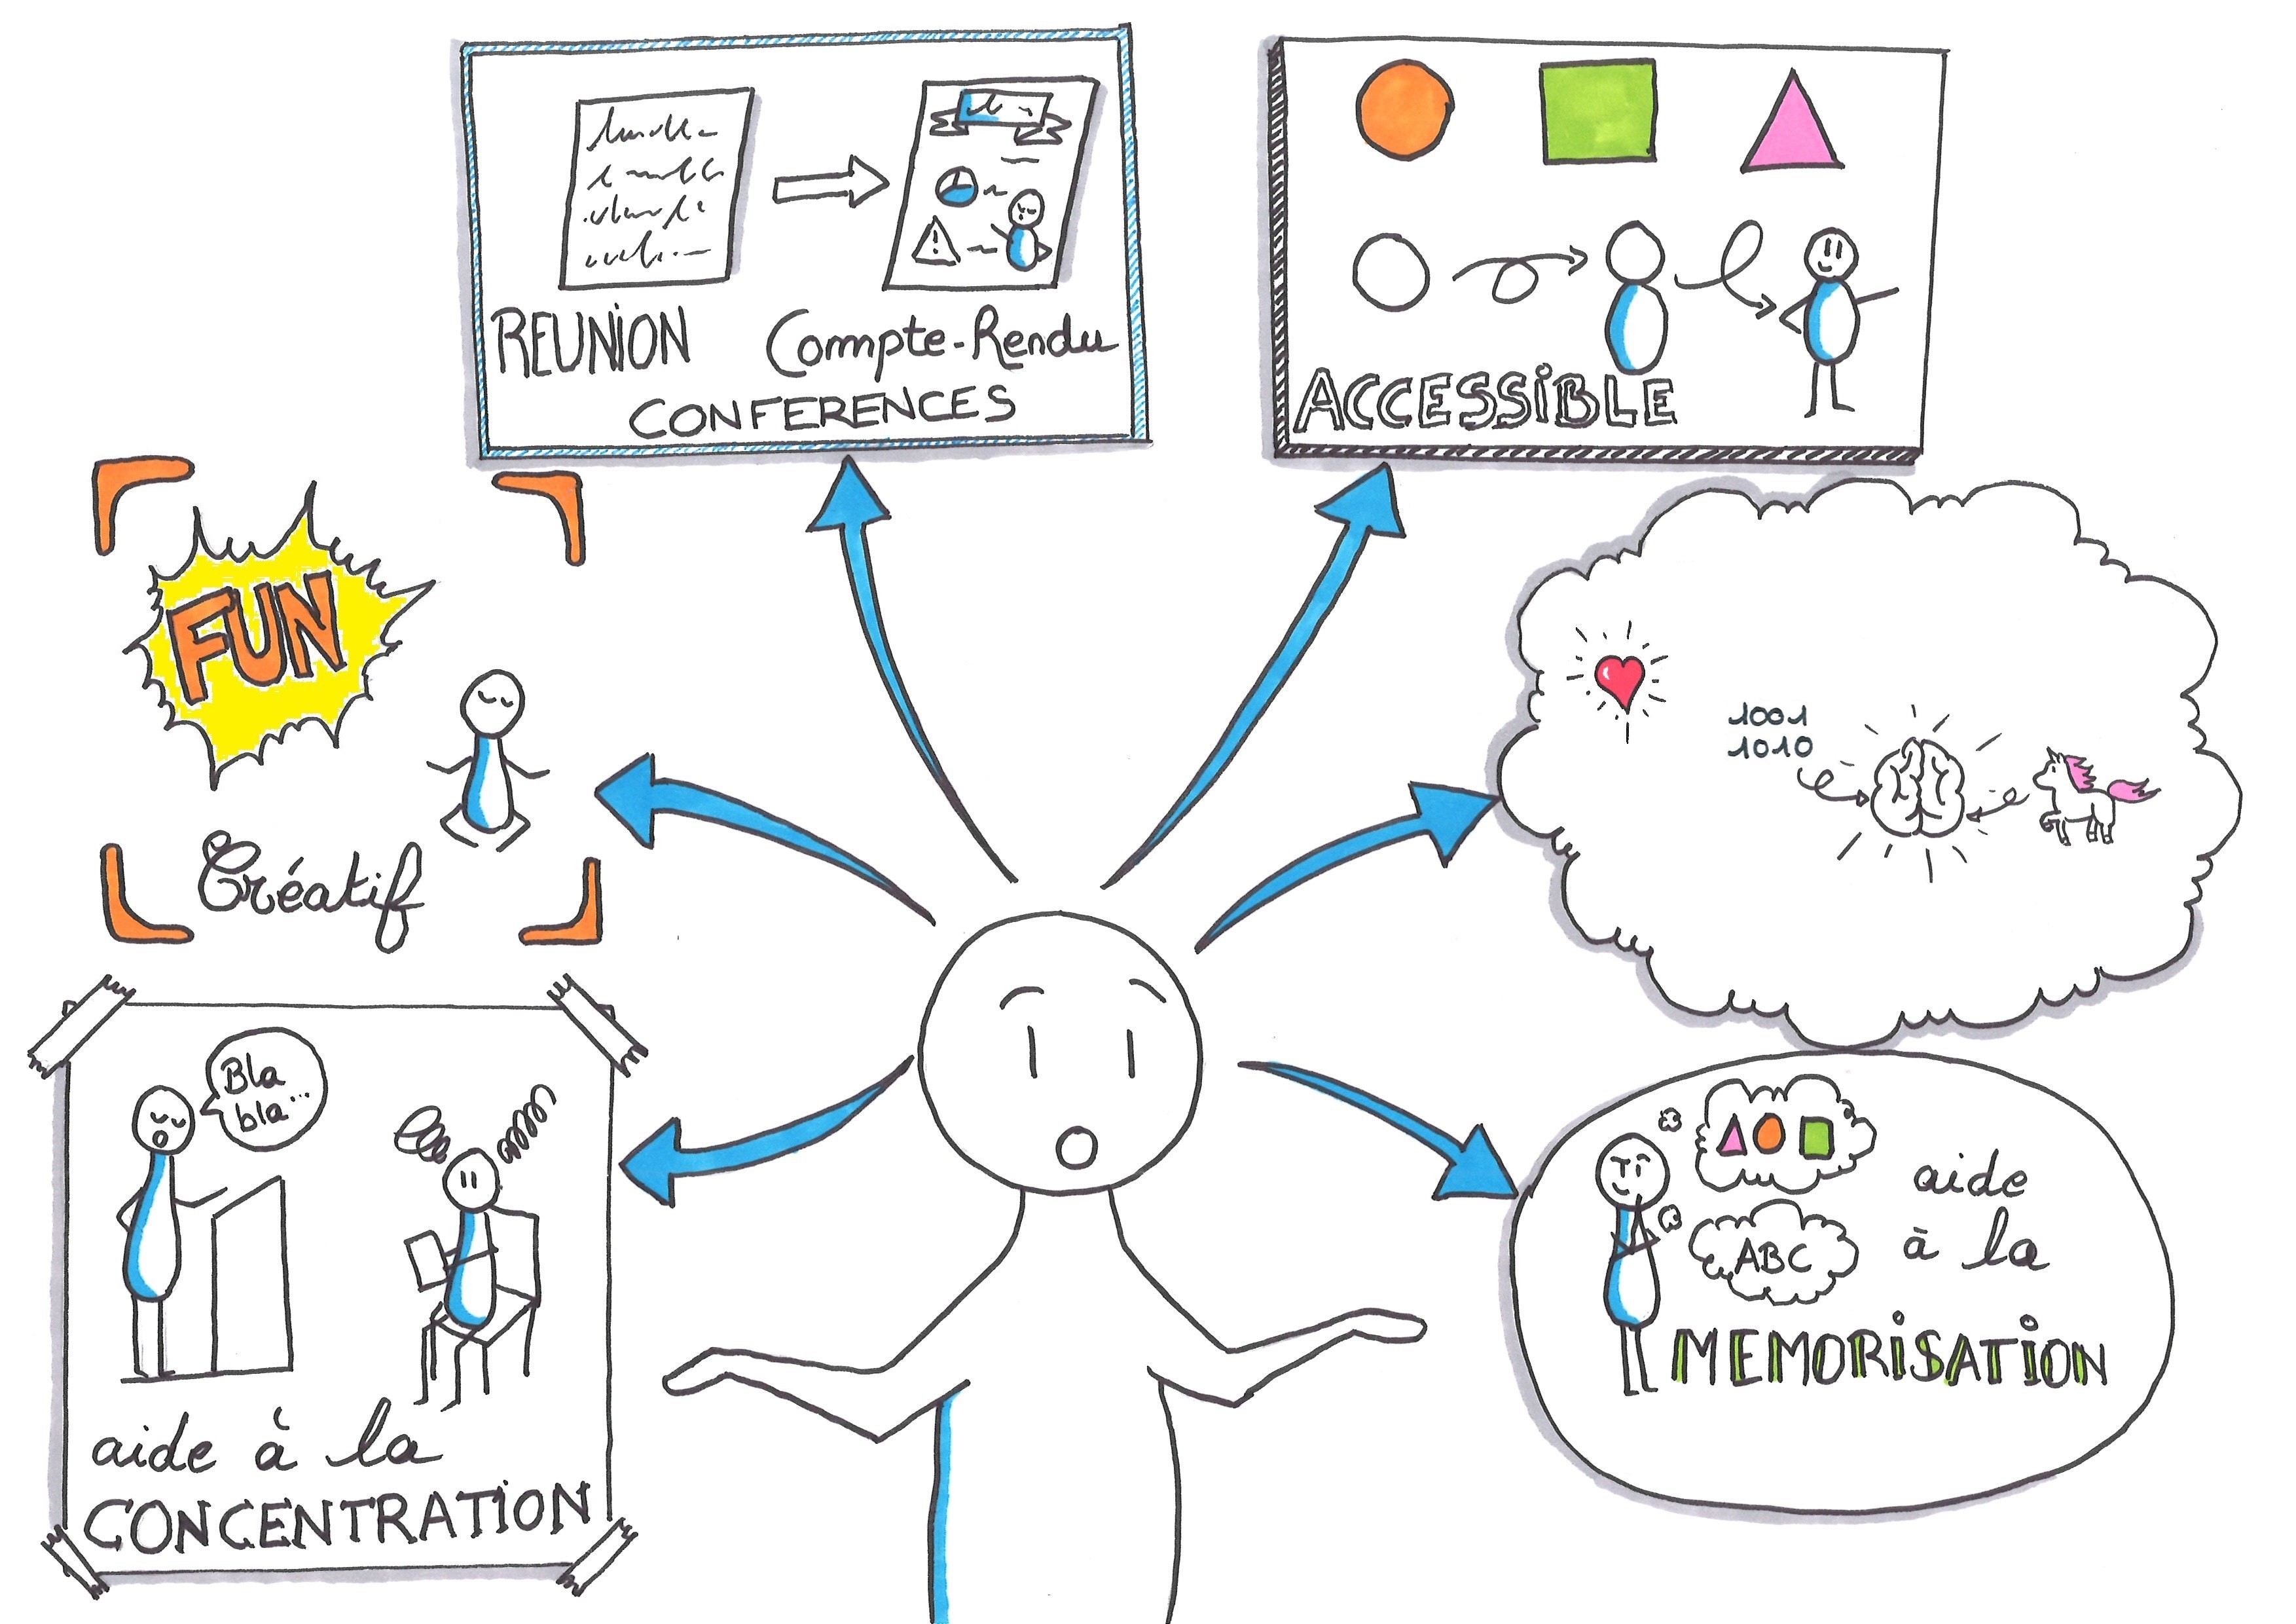 REUNION
Compte-Rendu
CONFERENCES
ACCESSIBLE
FUN
Créatif
1001
1010
Bla
bla...
aide à la
CONCENTRATION
ABC
aide
à la
MEMORISATION